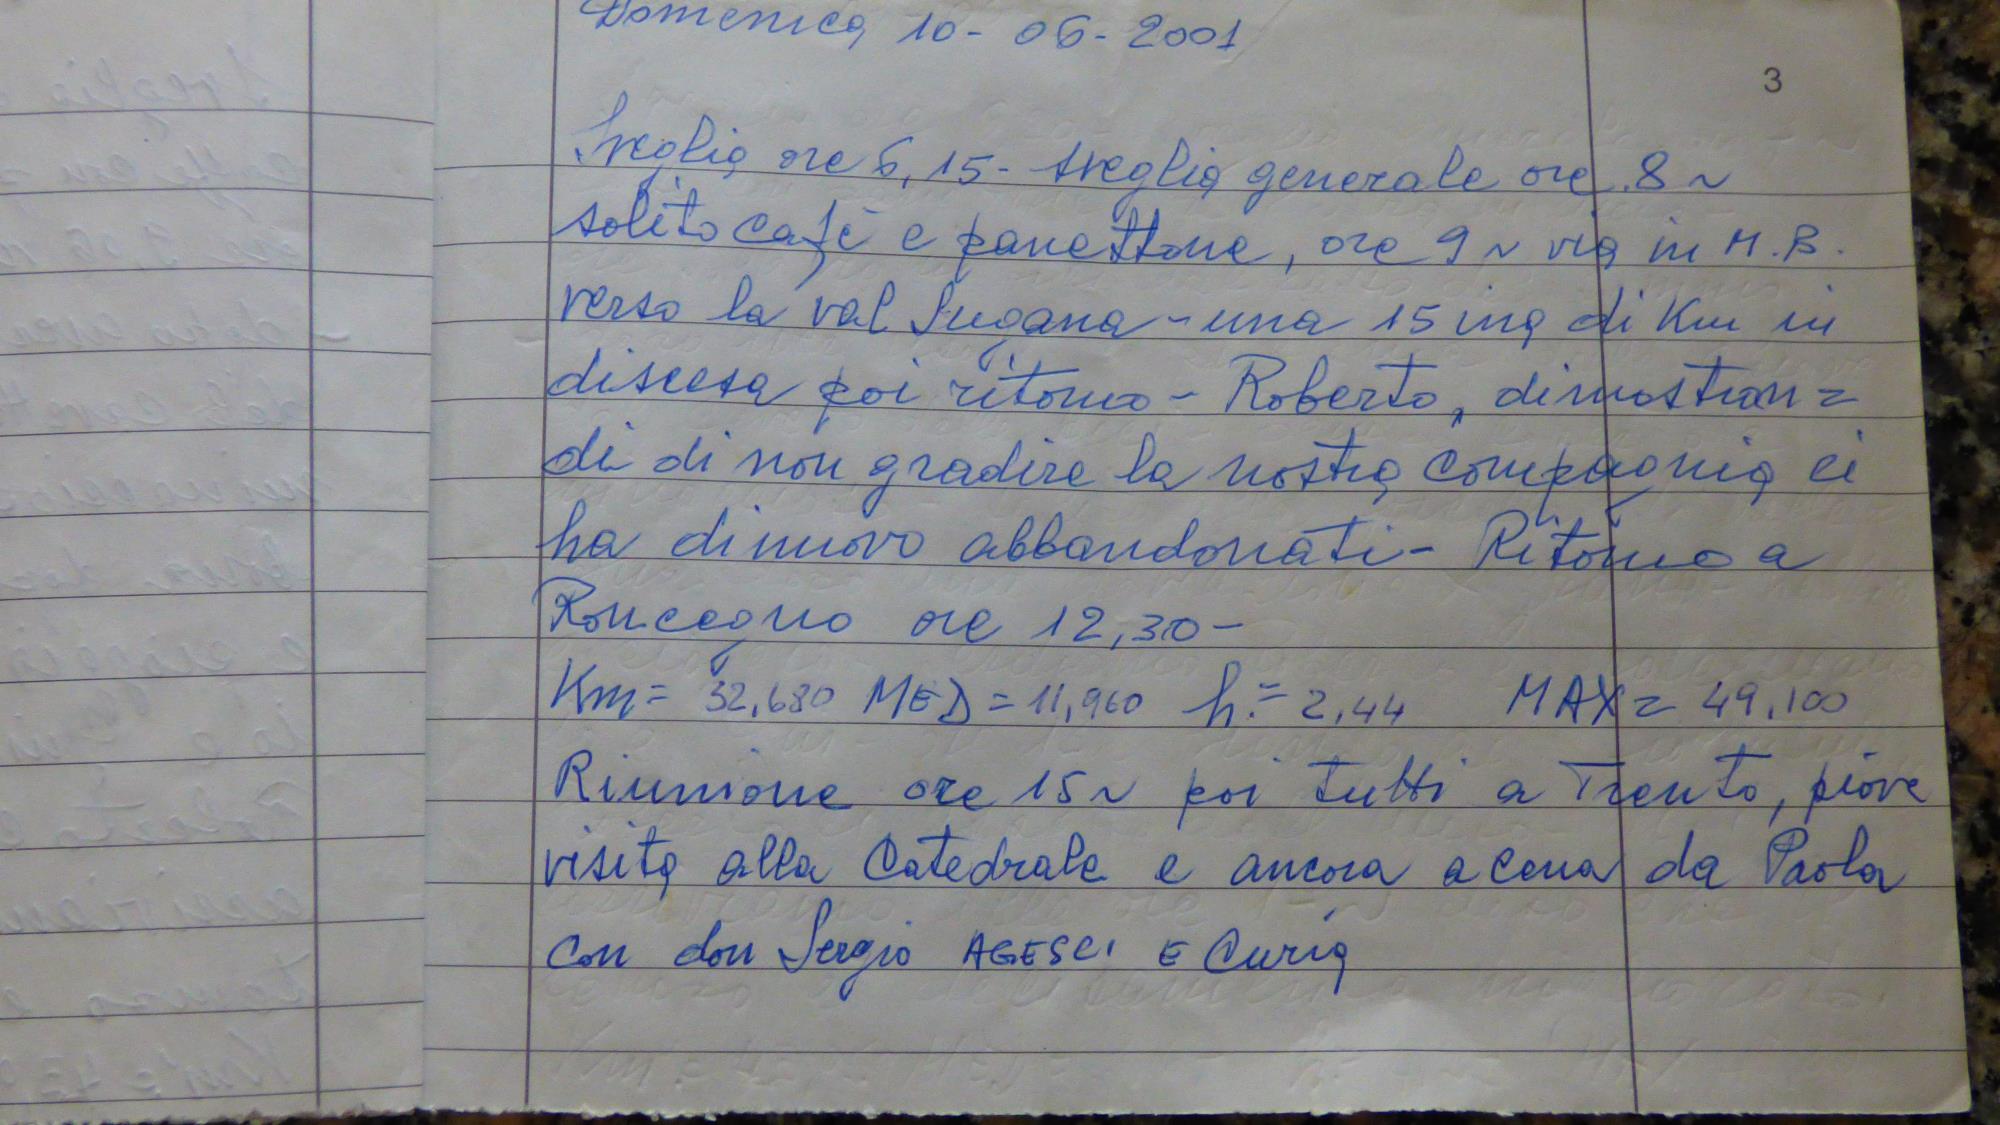 Domenica 10-06-2001
3
Sveglia ore 6,15- sveglia generale ore 8~
solito cafè e panettone, ore 9~ via in M.B.
verso la val Sugana - una 15ina di Km in
discesa poi ritorno - Roberto, dimostran=
di di non gradire la nostra compagnia ci
ha di nuovo abbandonati - Ritorno a
Roncegno ore 12,30-
Km= 32,680 MED=11,960 h.=2,44 MAX= 49,100
Riunione ore 15~ poi tutti a Trento, piove
visita alla Catedrale e ancora a cena da Paola
con don Sergio AGESCI E Curia